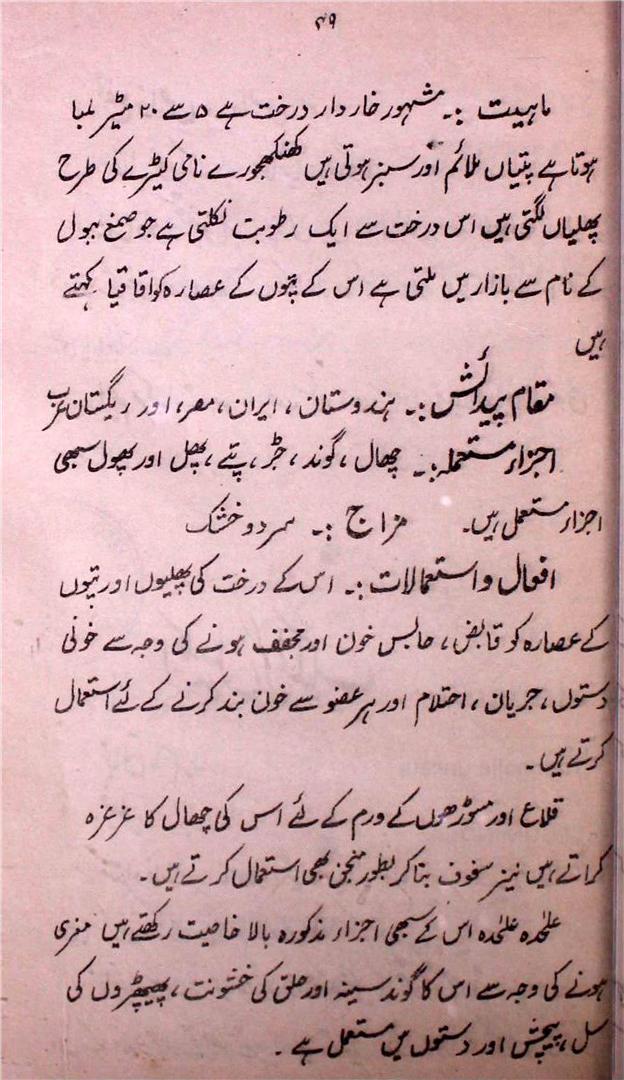 ۴۹
ماہیت :۔ مشہور خاردار درخت ہے ۵ سے ۲۰ میٹر لمبا
ہوتا ہے پتیاں ملائم اور سبز ہوتی ہیں کھنکھجورے نامی کیڑے کی طرح
پھلیاں لگتی ہیں اس درخت سے ایک رطوبت نکلتی ہے جو صمغ ببول
کے نام سے بازار میں ملتی ہے اس کے پتوں کے عصارہ کو اقاقیا کہتے
ہیں
مقام پیدائش :۔ ہندوستان، ایران، مصر، اور ریگستان عرب
اجزاء مستعملہ :۔ چھال، گوند، جڑ، پتے، پھل اور پھول سبھی
اجزاء مستعمل ہیں۔ مزاج :۔ سرد و خشک
افعال و استعمالات :۔ اس کے درخت کی پھلیوں اور پتیوں
کے عصارہ کو قابض، حابس خون اور مجفف ہونے کی وجہ سے خونی
دستوں، جریان، احتلام اور ہر عضو سے خون بند کرنے کے لئے استعمال
کرتے ہیں۔
قلاع اور مسوڑھوں کے ورم کے لئے اس کی چھال کا غرغرہ
کراتے ہیں نیز سفوف بنا کر بطور منجن بھی استعمال کرتے ہیں۔
علٰحدہ علٰحدہ اس کے سبھی اجزاء مذکورہ بالا خاصیت رکھتے ہیں مغری
ہونے کی وجہ سے اس کا گوند سینہ اور حلق کی خشونت، پھیپھڑوں کی
سل، پیچش اور دستوں میں مستعمل ہے۔